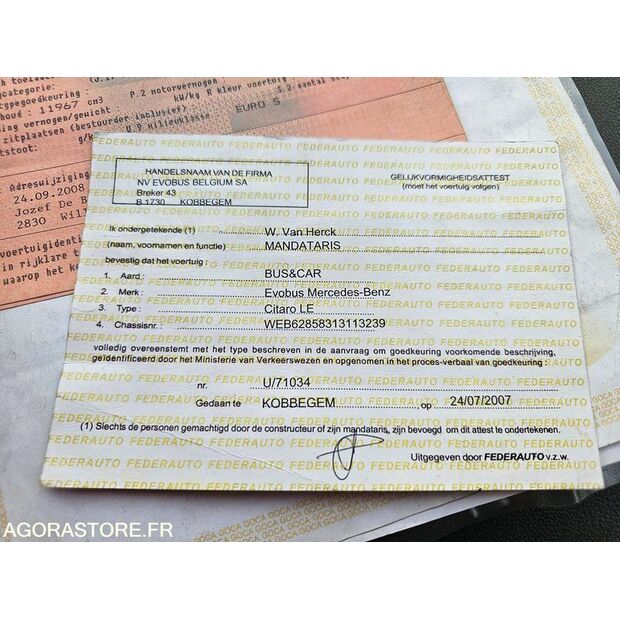 P.2 motorvermogen
kW/kg R kleur voertuig
S.2 aantal
11967 cm3
EURO 5
zitplaatsen (bestuurder inclusief)
U.9 milieuklasse
Adreswijziging
24.09.2008
Jozef De B
2830
FEDERAUTO FEDERAUTO FEDERAUTO FEDERAUTO FEDERAUTO FEDERAUTO
HANDELSNAAM VAN DE FIRMA
NV EVOBUS BELGIUM SA
Breker 43
B 1730 KOBBEGEM
GELIJKVORMIGHEIDSATTEST
(moet het voertuig volgen)
Ik ondergetekende (1) : W. Van Herck
(naam, voornamen en functie) MANDATARIS
bevestig dat het voertuig :
1. Aard : BUS&CAR
2. Merk : Evobus Mercedes-Benz
3. Type : Citaro LE
4. Chassisnr. : WEB62858313113239
volledig overeenstemt met het type beschreven in de aanvraag om goedkeuring voorkomende beschrijving,
geïdentificeerd door het Ministerie van Verkeerswezen en opgenomen in het proces-verbaal van goedkeuring :
nr. U/71034
Gedaan te KOBBEGEM op 24/07/2007
(1) Slechts de personen gemachtigd door de constructeur of zijn mandataris, zijn bevoegd om dit attest te ondertekenen.
Uitgegeven door FEDERAUTO v.z.w.
AGORASTORE.FR